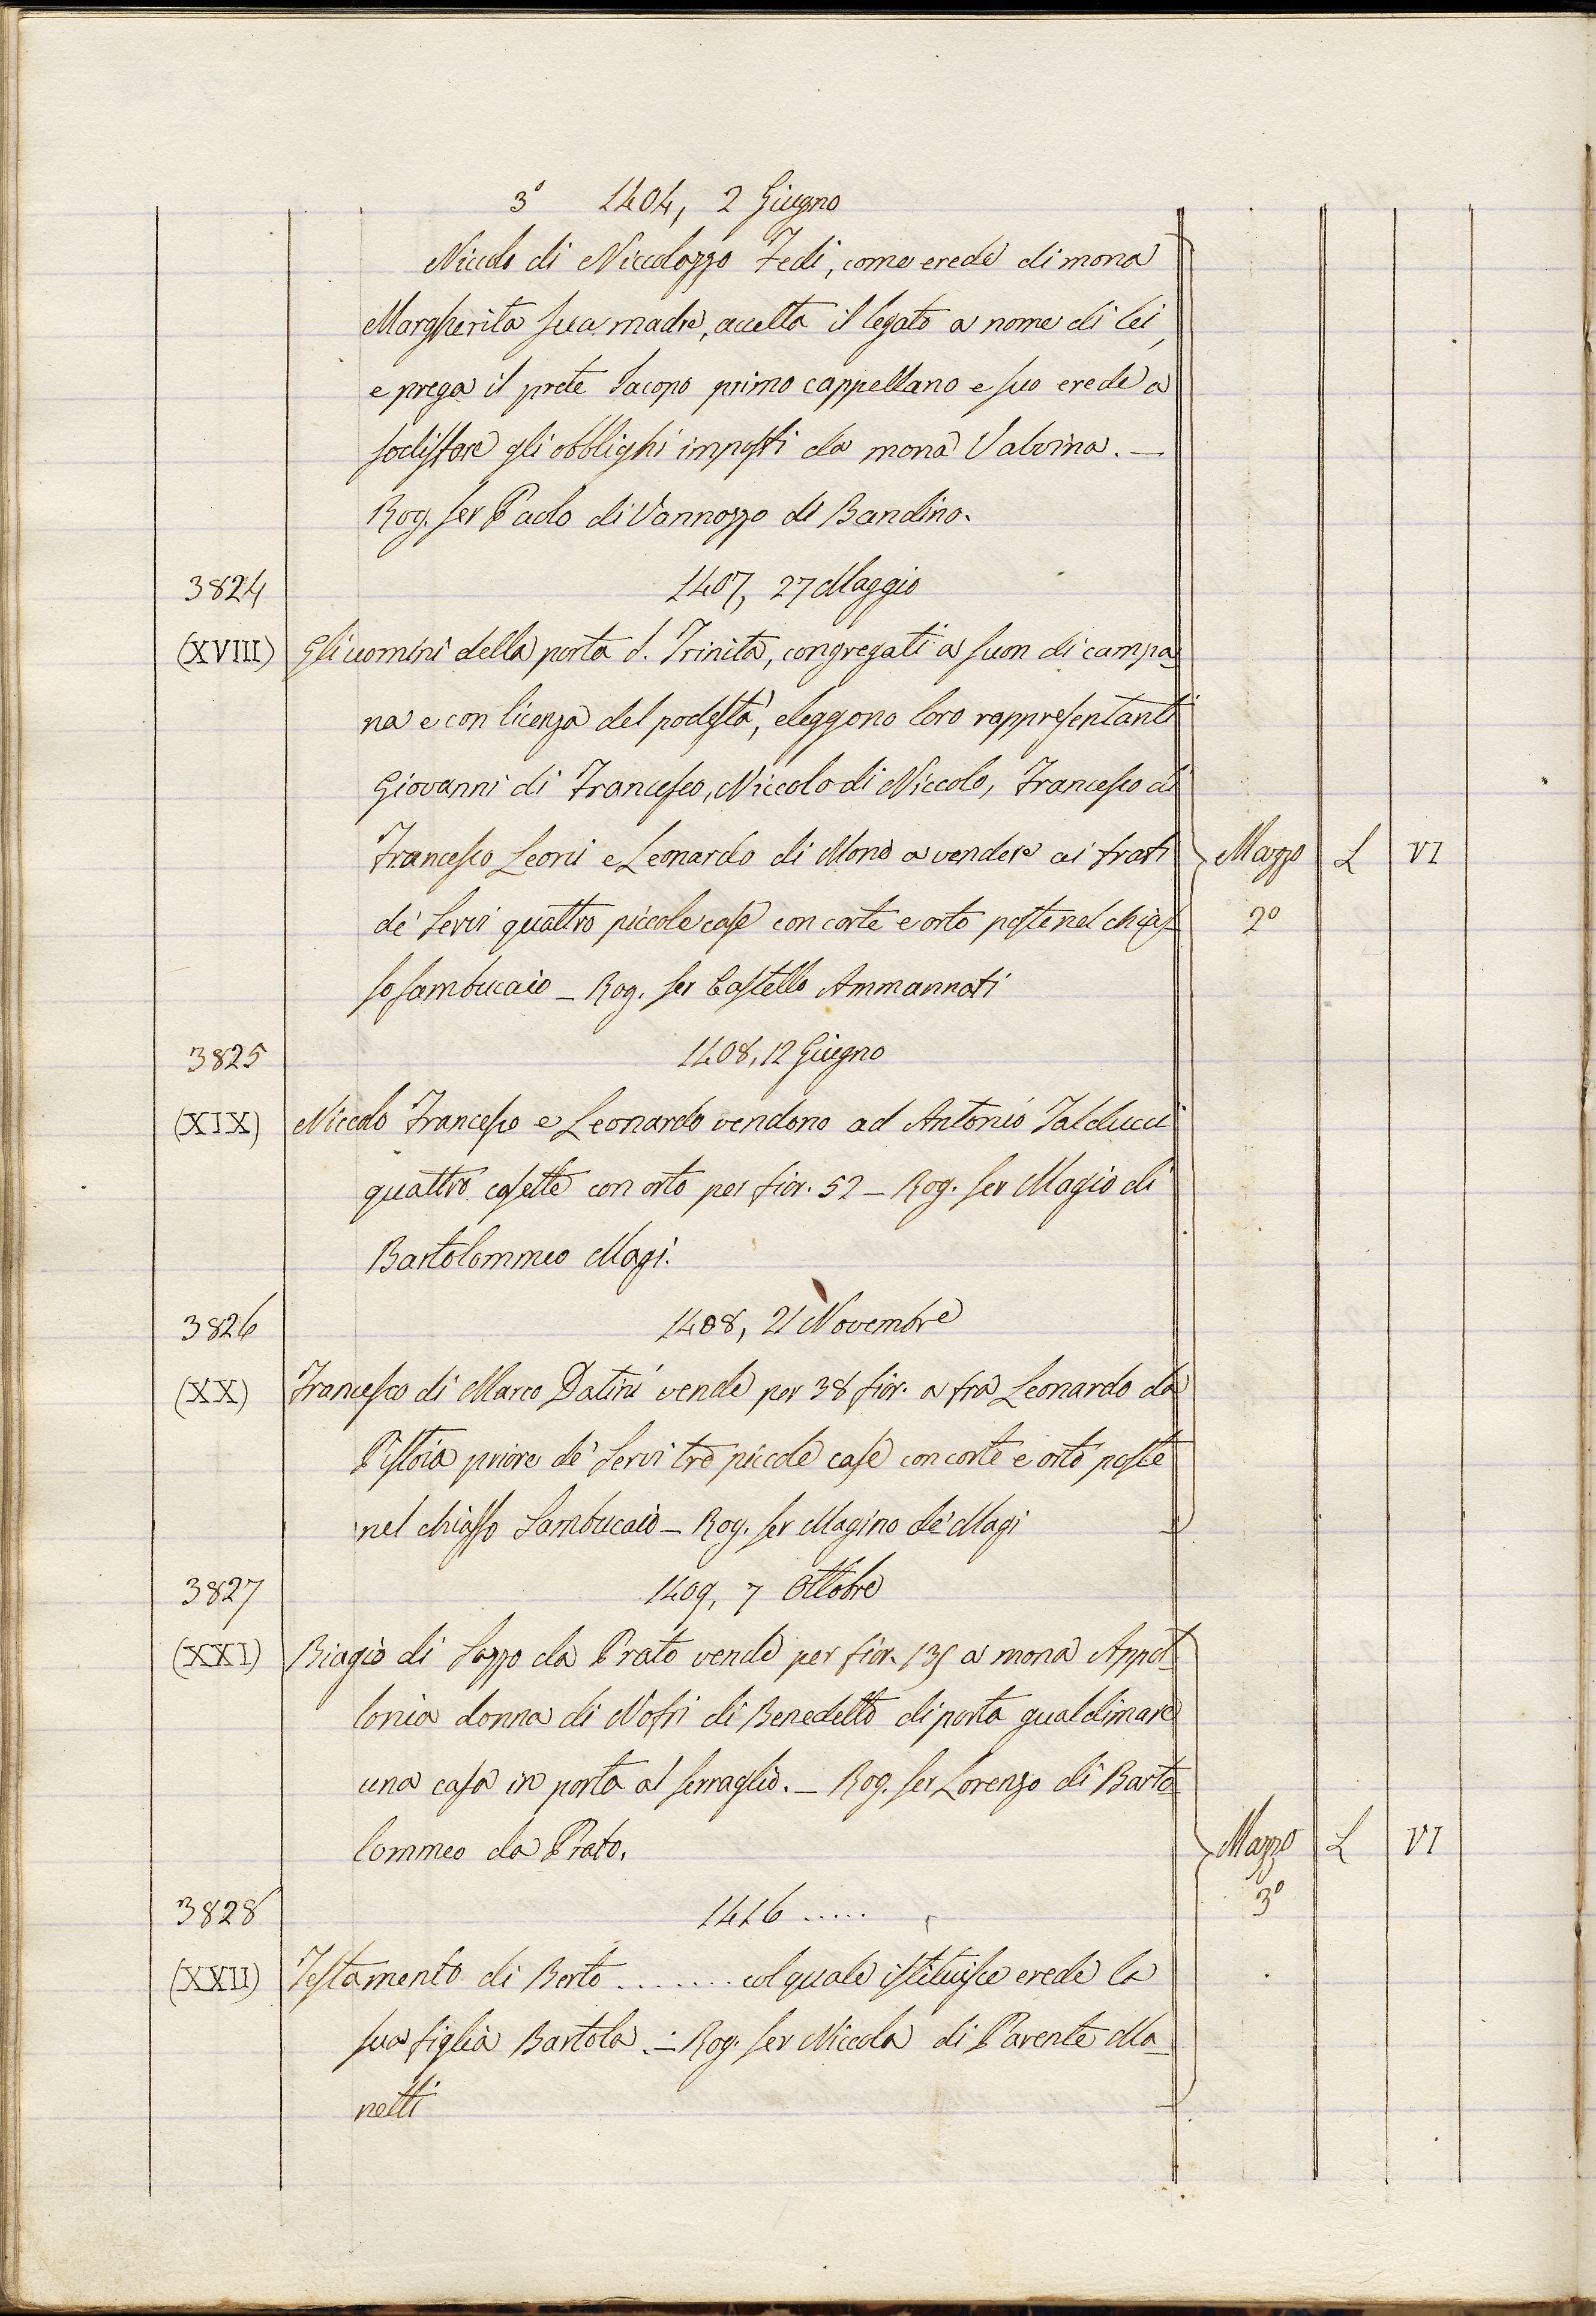 3° 1404, 2 Giugno
Niccolo di Niccolozzo Fedi, come erede di mona
Margherita sua madre, accetta il legato a nome di lei,
e prega il prete Iacopo primo cappellano e suo erede a
sodisfare gli obblighi imposti da mona Valvina. —
Rog. ser Paolo di Vannozzo di Bandino.
3824 1407, 27 Maggio
(XVIII) Gli uomini della porta S. Trinita, congregati a suon di campa-
na e con licenza del podestà, eleggono loro rappresentanti
Giovanni di Francesco, Niccolo di Niccolo, Francesco di
Francesco Leoni e Leonardo di Mono a vendere ai frati
Mazzo L VI
de' Servi quattro piccole case con corte e orto poste nel chias-
2°
so Sambucaio — Rog. ser Castello Ammannati
3825 1408, 12 Giugno
(XIX) Niccolo Francesco e Leonardo vendono ad Antonio Talducci
quattro casette con orto per fior. 52 — Rog. ser Magio di
Bartolommeo Magi.
3826 1408, 21 Novembre
(XX) Francesco di Marco Datini vende per 38 fior. a fra Leonardo da
Pistoia priore de' Servi tre piccole case con corte e orto poste
nel chiasso Sambucaio — Rog. ser Magino de' Magi
3827 1409, 7 Ottobre
(XXI) Biagio di Lazzo da Prato vende per fior. 135 a mona Appol-
lonia donna di Nofri di Benedetto di porta gualdimare
una casa in porta al serraglio. — Rog. ser Lorenzo di Barto-
lommeo da Prato.
Mazzo L VI
3°
3828 1416 .....
(XXII) Testamento di Berto ....... col quale istituisce erede la
sua figlia Bartola. — Rog. ser Niccola di Parente Ma-
netti